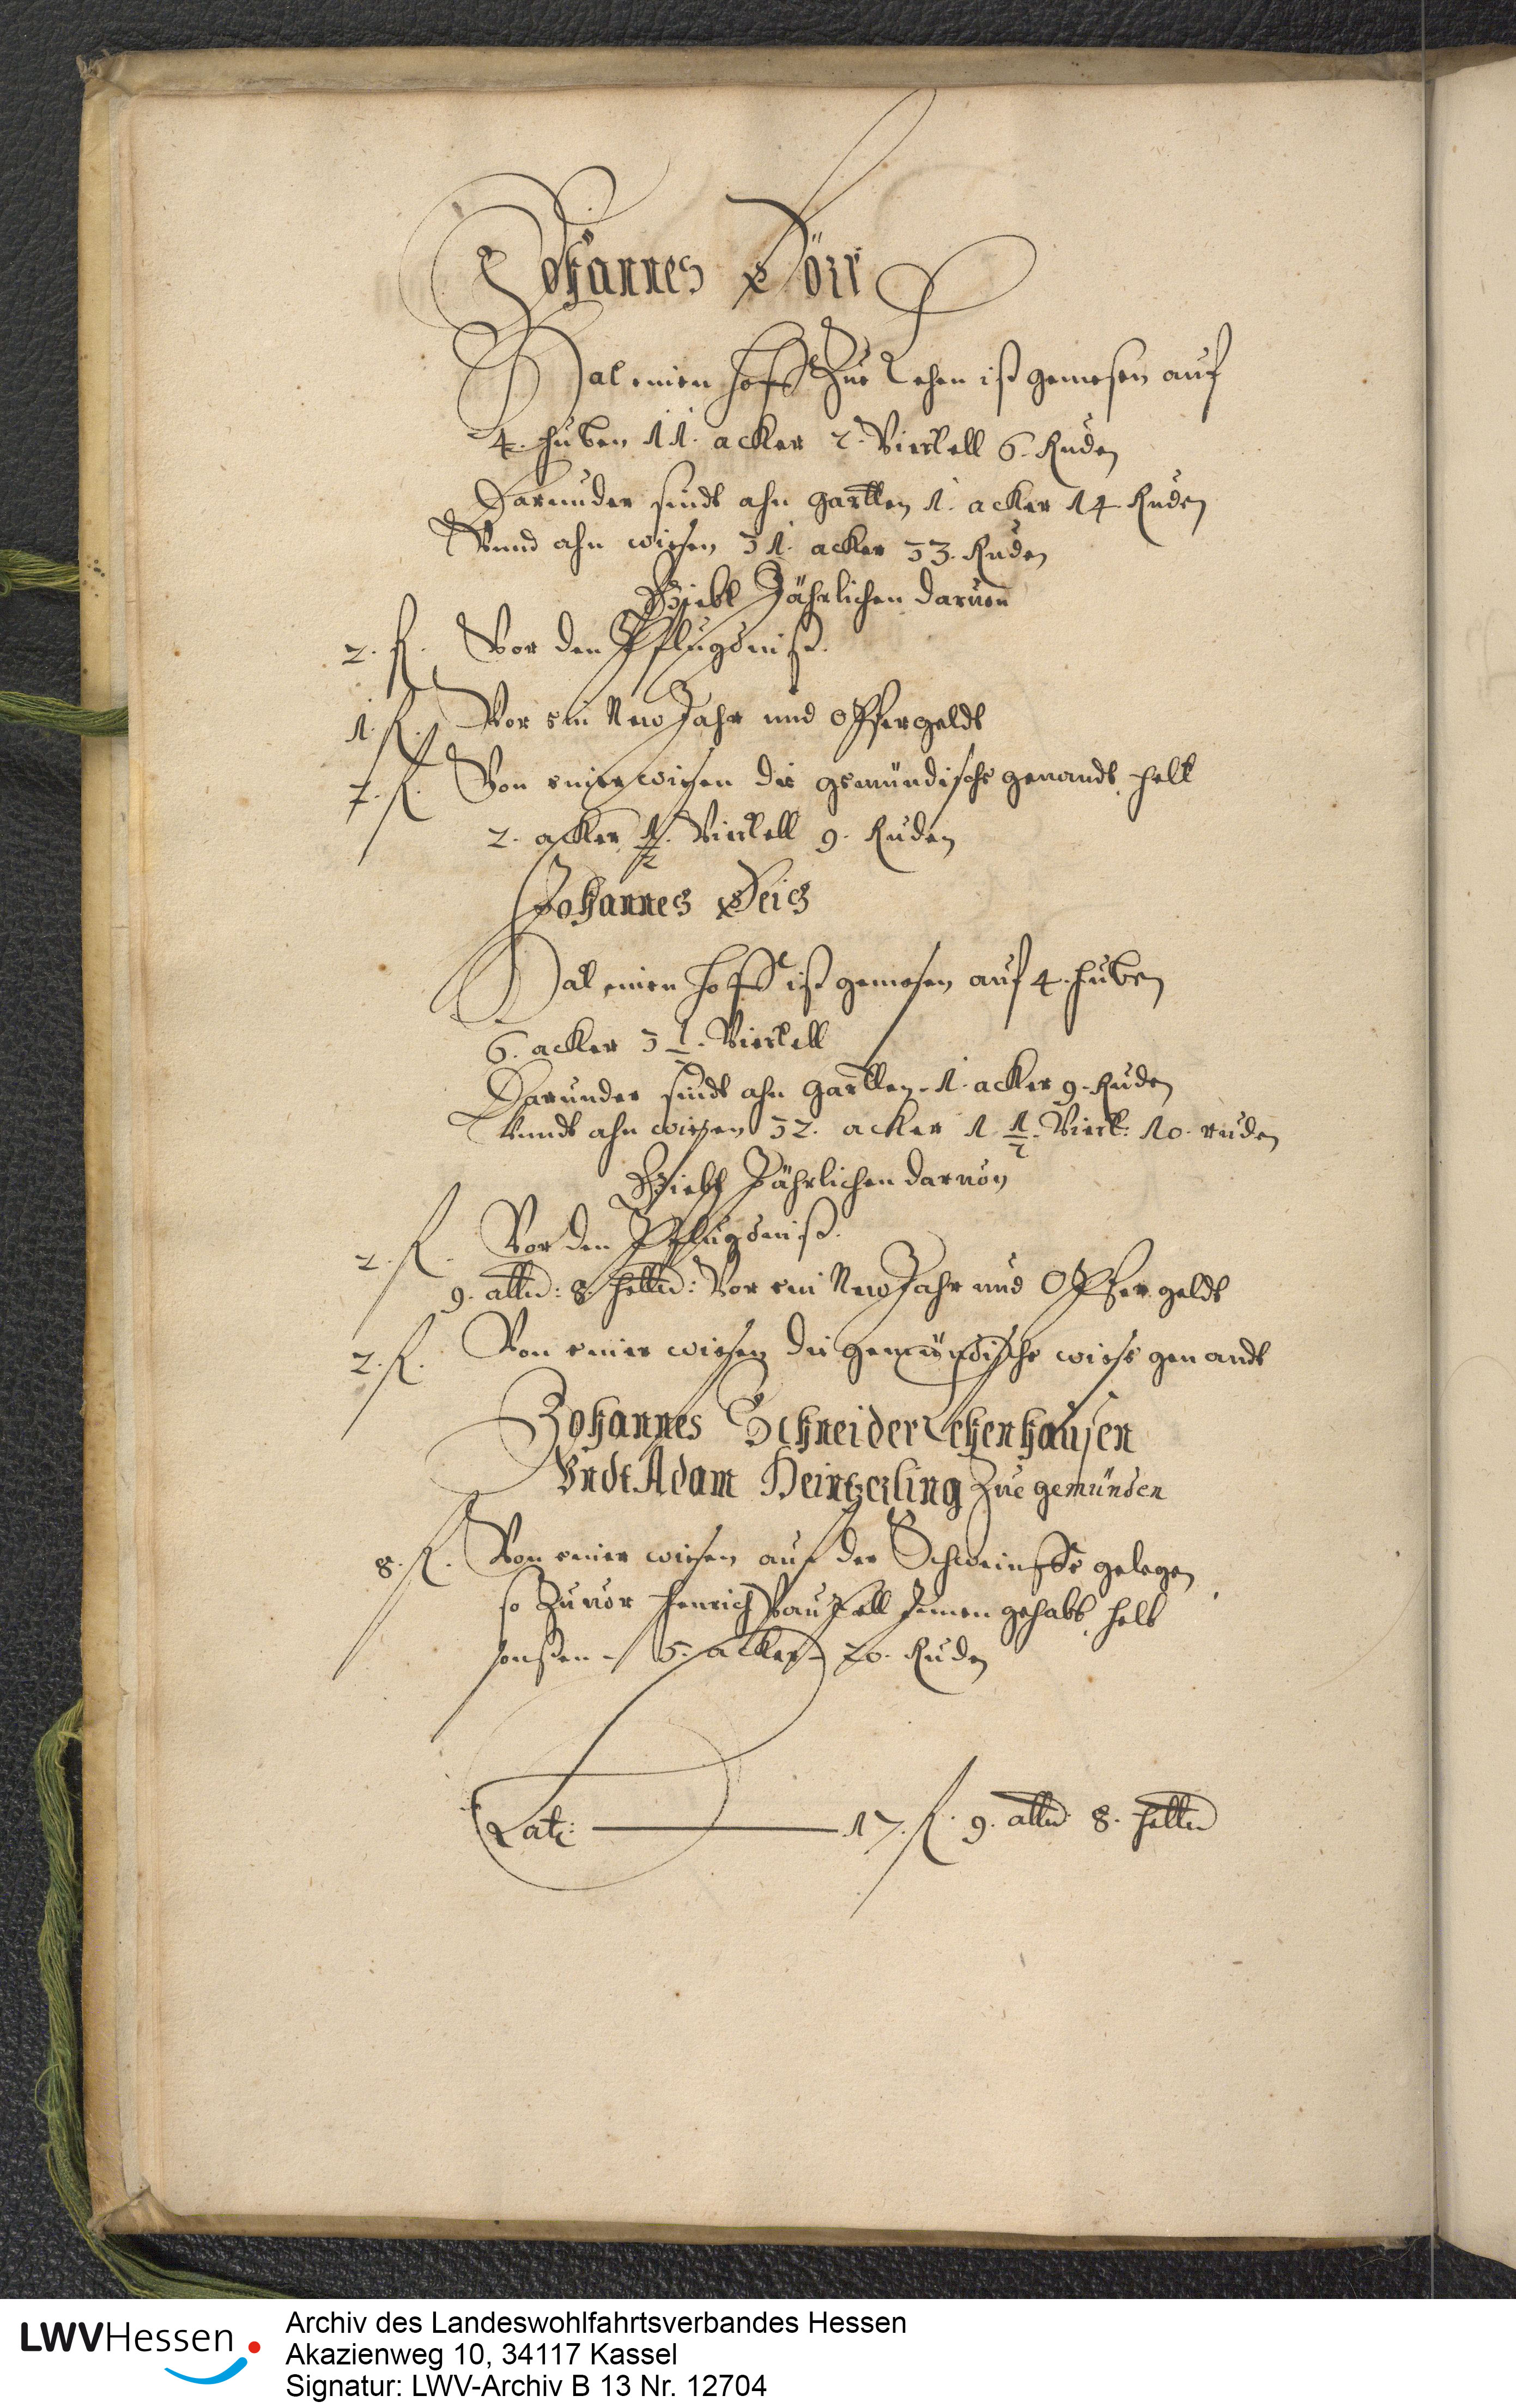 Johannes Dörr
Hat einen Hoff Zue Lehen ist gemesen auf
4. Huben 11. acker 2. Viertell 6. Ruden
Darunder sindt ahn gartten 1. acker 14. Ruden
Vnnd ahn wiesen 31. acker 33. Ruden
Giebt Jährlichen daruon
2. fl. Vor den Pflugdinst.
1. fl. Vor ein New Jahr und Opfergeldt
7. fl. Von einer wiesen die gemündische genandt helt
2. acker 1/2. Viertell 9. Ruden
Johannes Deis
Hat einen Hoff ist gemesen auf 4. Huben
6. acker 3 1/2. Viertell
Darunder sindt ahn gartten 1. acker 9. Ruden
Vnndt ahn wiesen 32. acker 1 1/2. Viert: 10. ruden
Giebt Jährlichen daruon
2. fl. Vor den Pflugdinst.
9. alb: 8. heller: Vor ein New Jahr und Opfer geldt
2. fl. Von einer wiesen die gemündische wiese genandt
Johannes Schneider Lehenhausen
Vndt Adam Heintzerling Zue gemünden
8. fl. Von einer wiesen auf der gelegen
so Zuuor Henrich Innen gehabt, helt
5. acker 20. Ruden
Lat: 17. fl. 9. alb 8. heller
LWVHessen
Archiv des Landeswohlfahrtsverbandes Hessen
Akazienweg 10, 34117 Kassel
Signatur: LWV-Archiv B 13 Nr. 12704